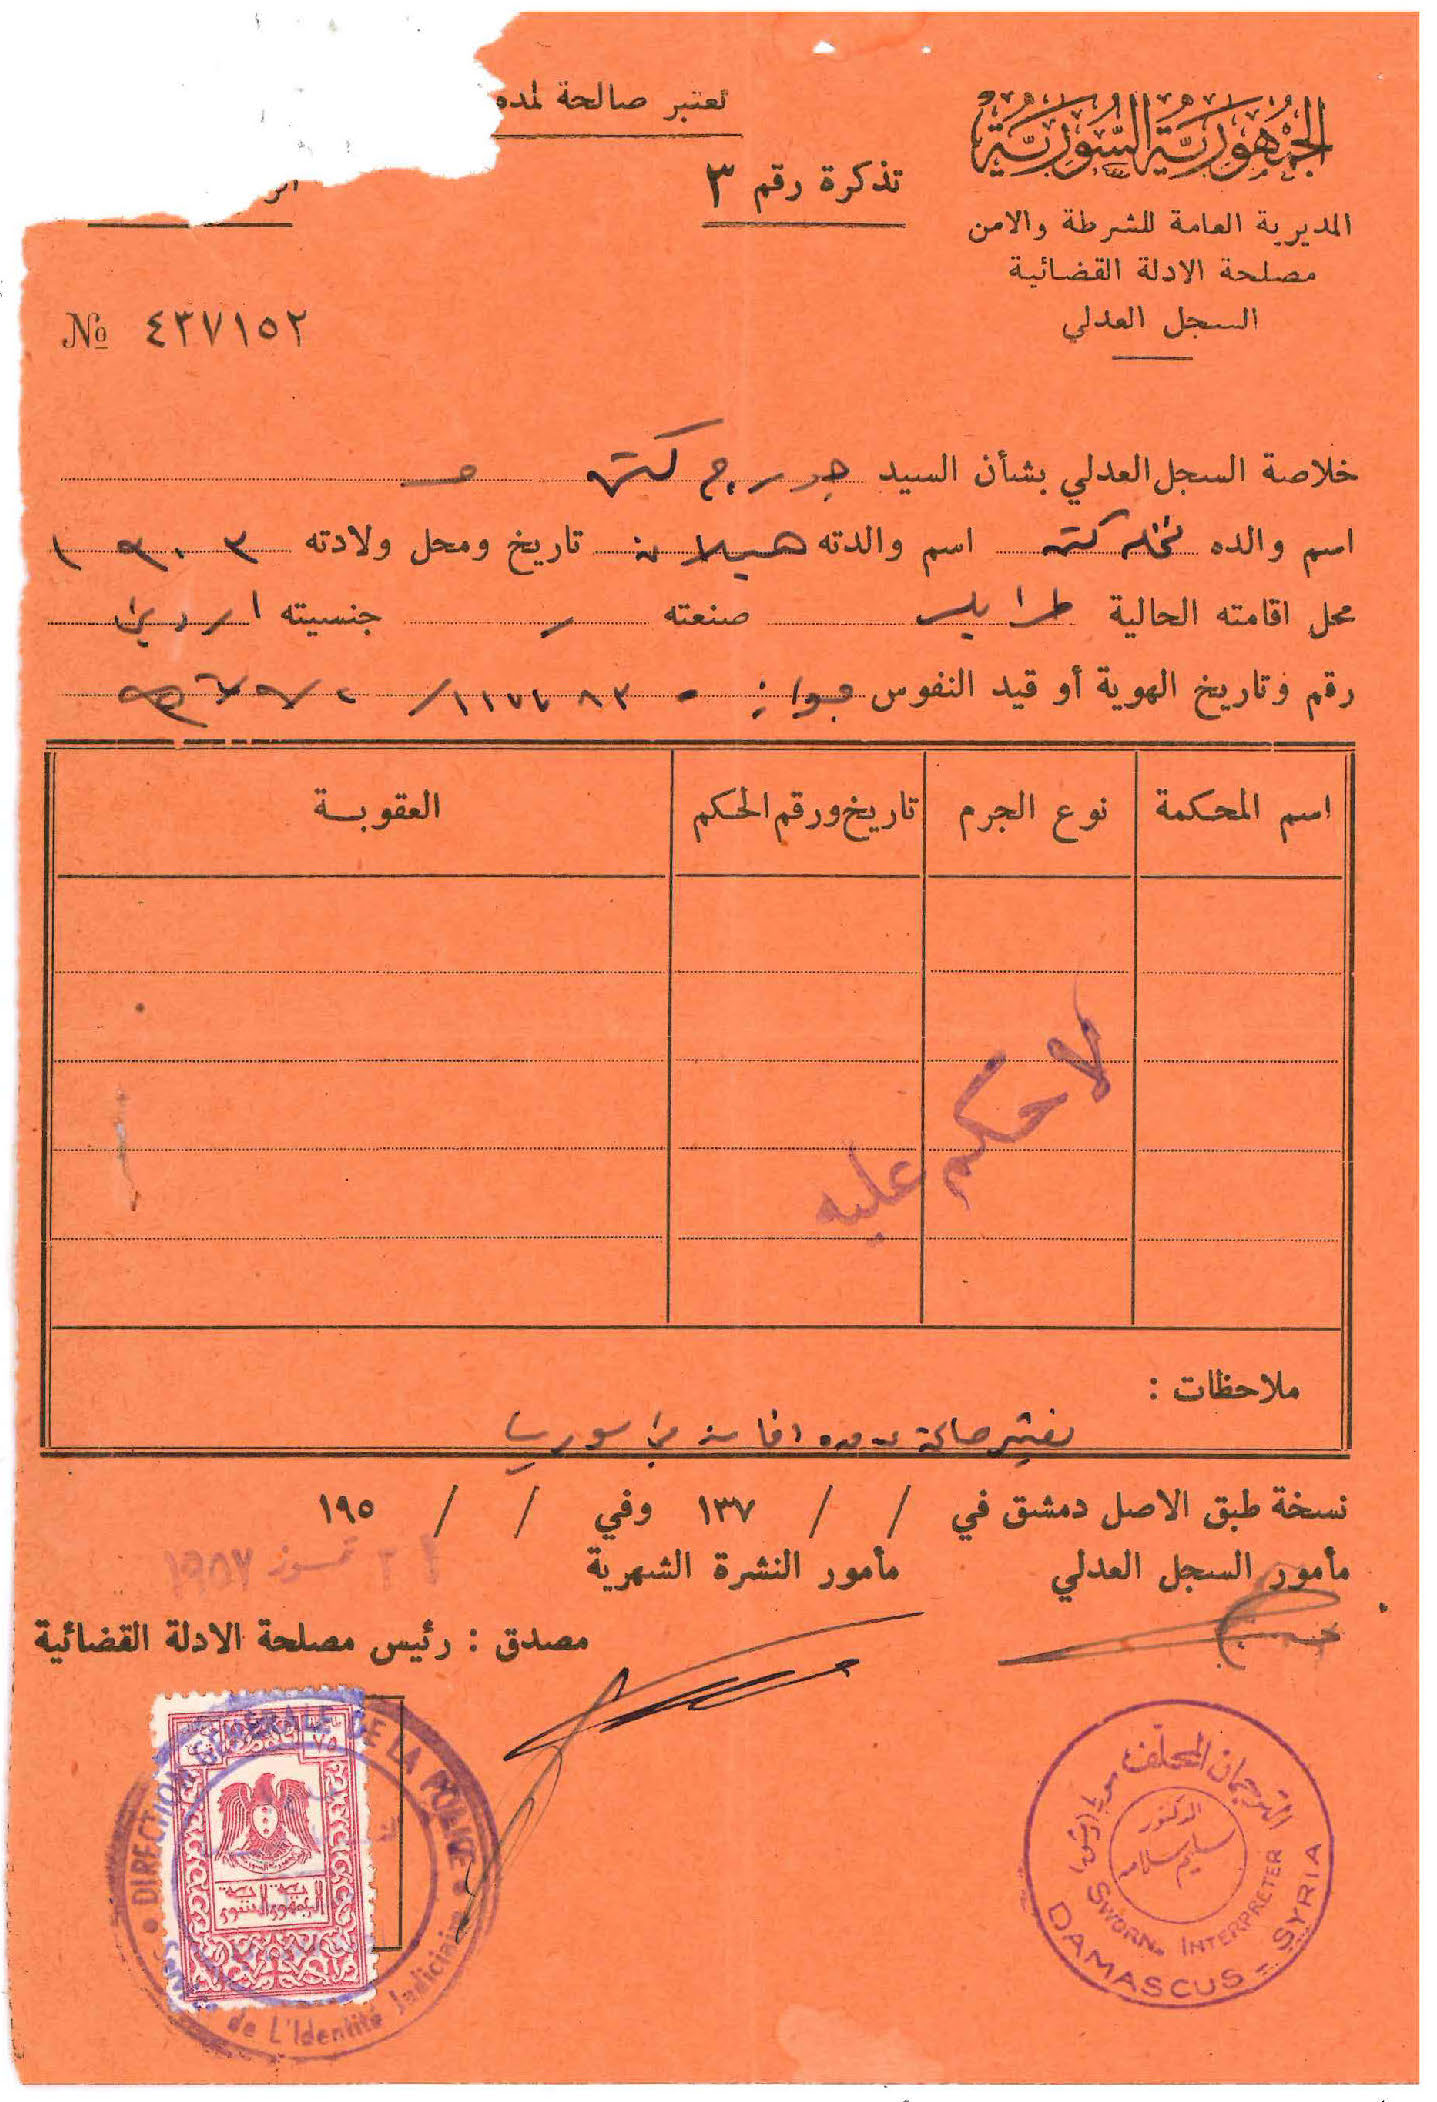 الجمهورية السورية
المديرية العامة للشرطة والامن
مصلحة الادلة القضائية
السجل العدلي
تعتبر صالحة لمده
تذكرة رقم ٣
№ ٤٣٧١٥٢
خلاصة السجل العدلي بشأن السيد جورج كتته
اسم والده نخله كتته اسم والدته هيلانة تاريخ ومحل ولادته ١٩٠٣
محل اقامته الحالية طرابلس صنعته جنسيته اردني
رقم وتاريخ الهوية أو قيد النفوس جواز
اسم المحكمة نوع الجرم تاريخ ورقم الحكم العقوبة
لا حكم عليه
ملاحظات :
تعتبر صالحة عن مده اقامته في سوريا
نسخة طبق الاصل دمشق في / / ١٣٧ وفي / / ١٩٥
٢٢ تموز ١٩٥٧
مأمور السجل العدلي مأمور النشرة الشهرية
مصدق : رئيس مصلحة الادلة القضائية
DIRECTION GÉNÉRALE DE LA POLICE
Service de L'Identité Judiciaire
الترجمان المحلف
الدكتور
سليم سلامه
SWORN INTERPRETER
DAMASCUS = SYRIA